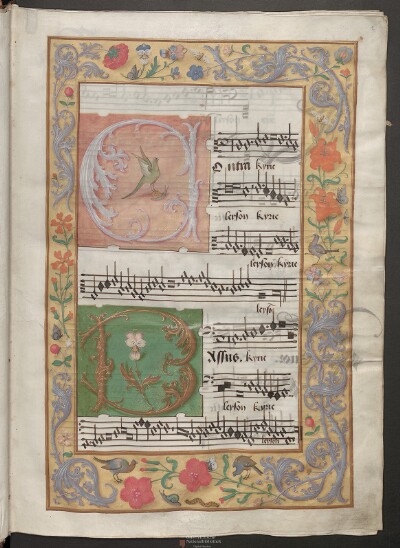 Kyrie
leyson Kyrie
leyson Kyrie
leyson
Assus. Kyrie
leyson Kyrie
leyson